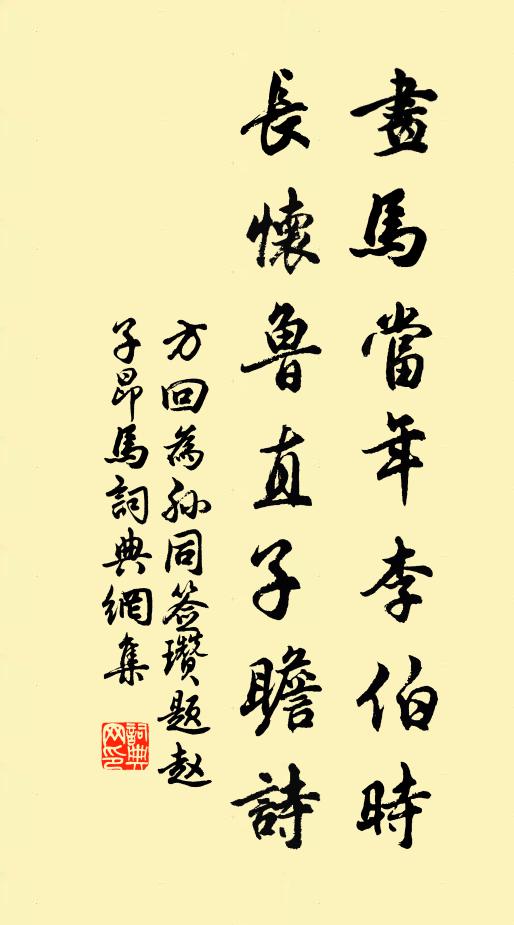 畫馬當年李伯時
長懷魯直子瞻詩
方回為孙同签瓚题赵
子昂馬詞典網集
詞典网印